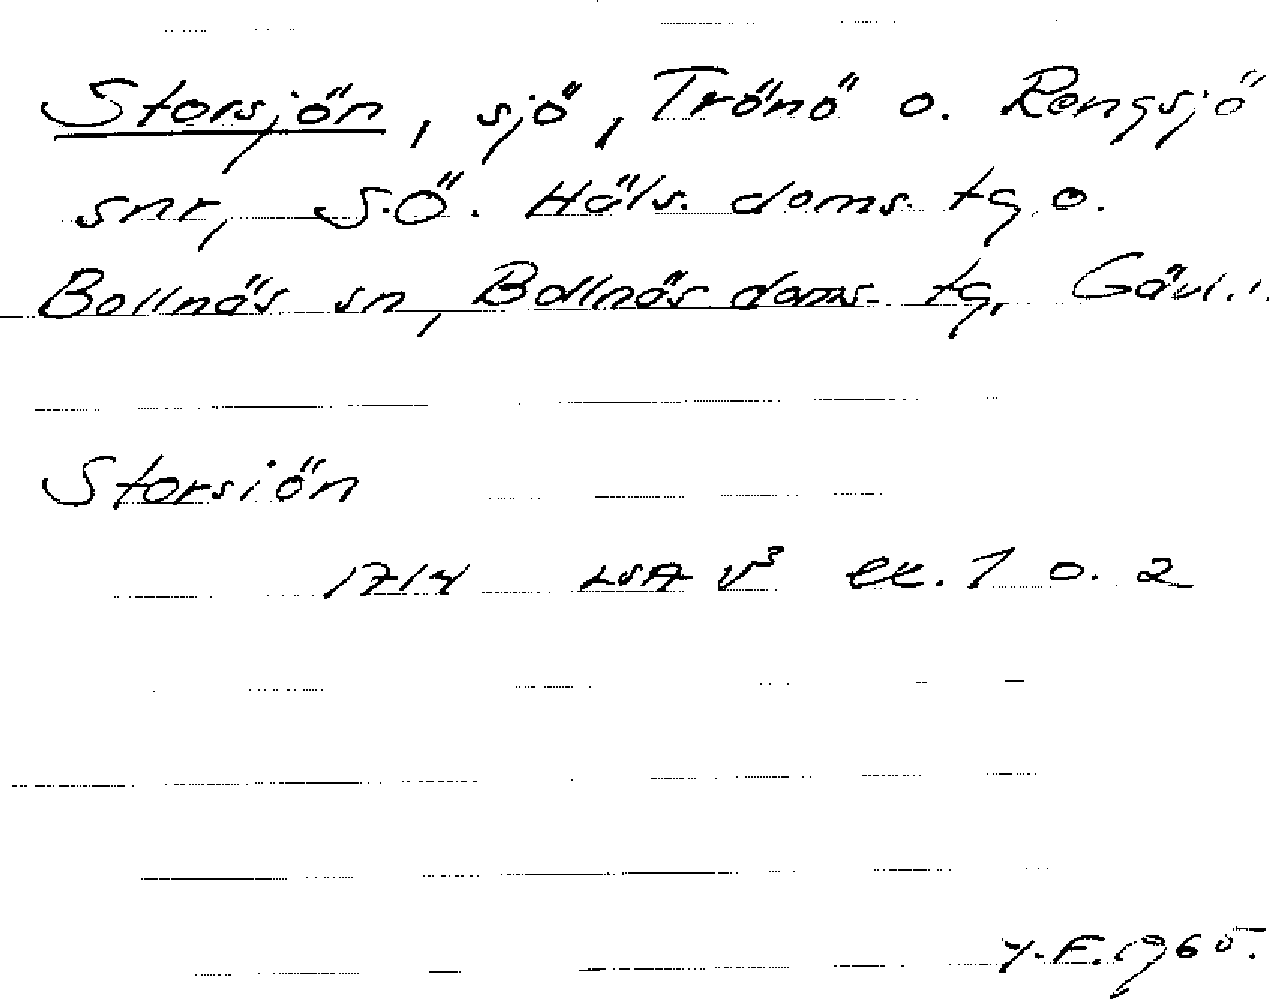 Storsjön, sjö, Trönö o. Rengsjö
snr, S.Ö. Häls. doms. tg, o.
Bollnäs sn, Bollnäs doms. tg, Gävl.l.
Storsiön
1714 LSA V³ ex. 1 o. 2
Y.F. 1965.